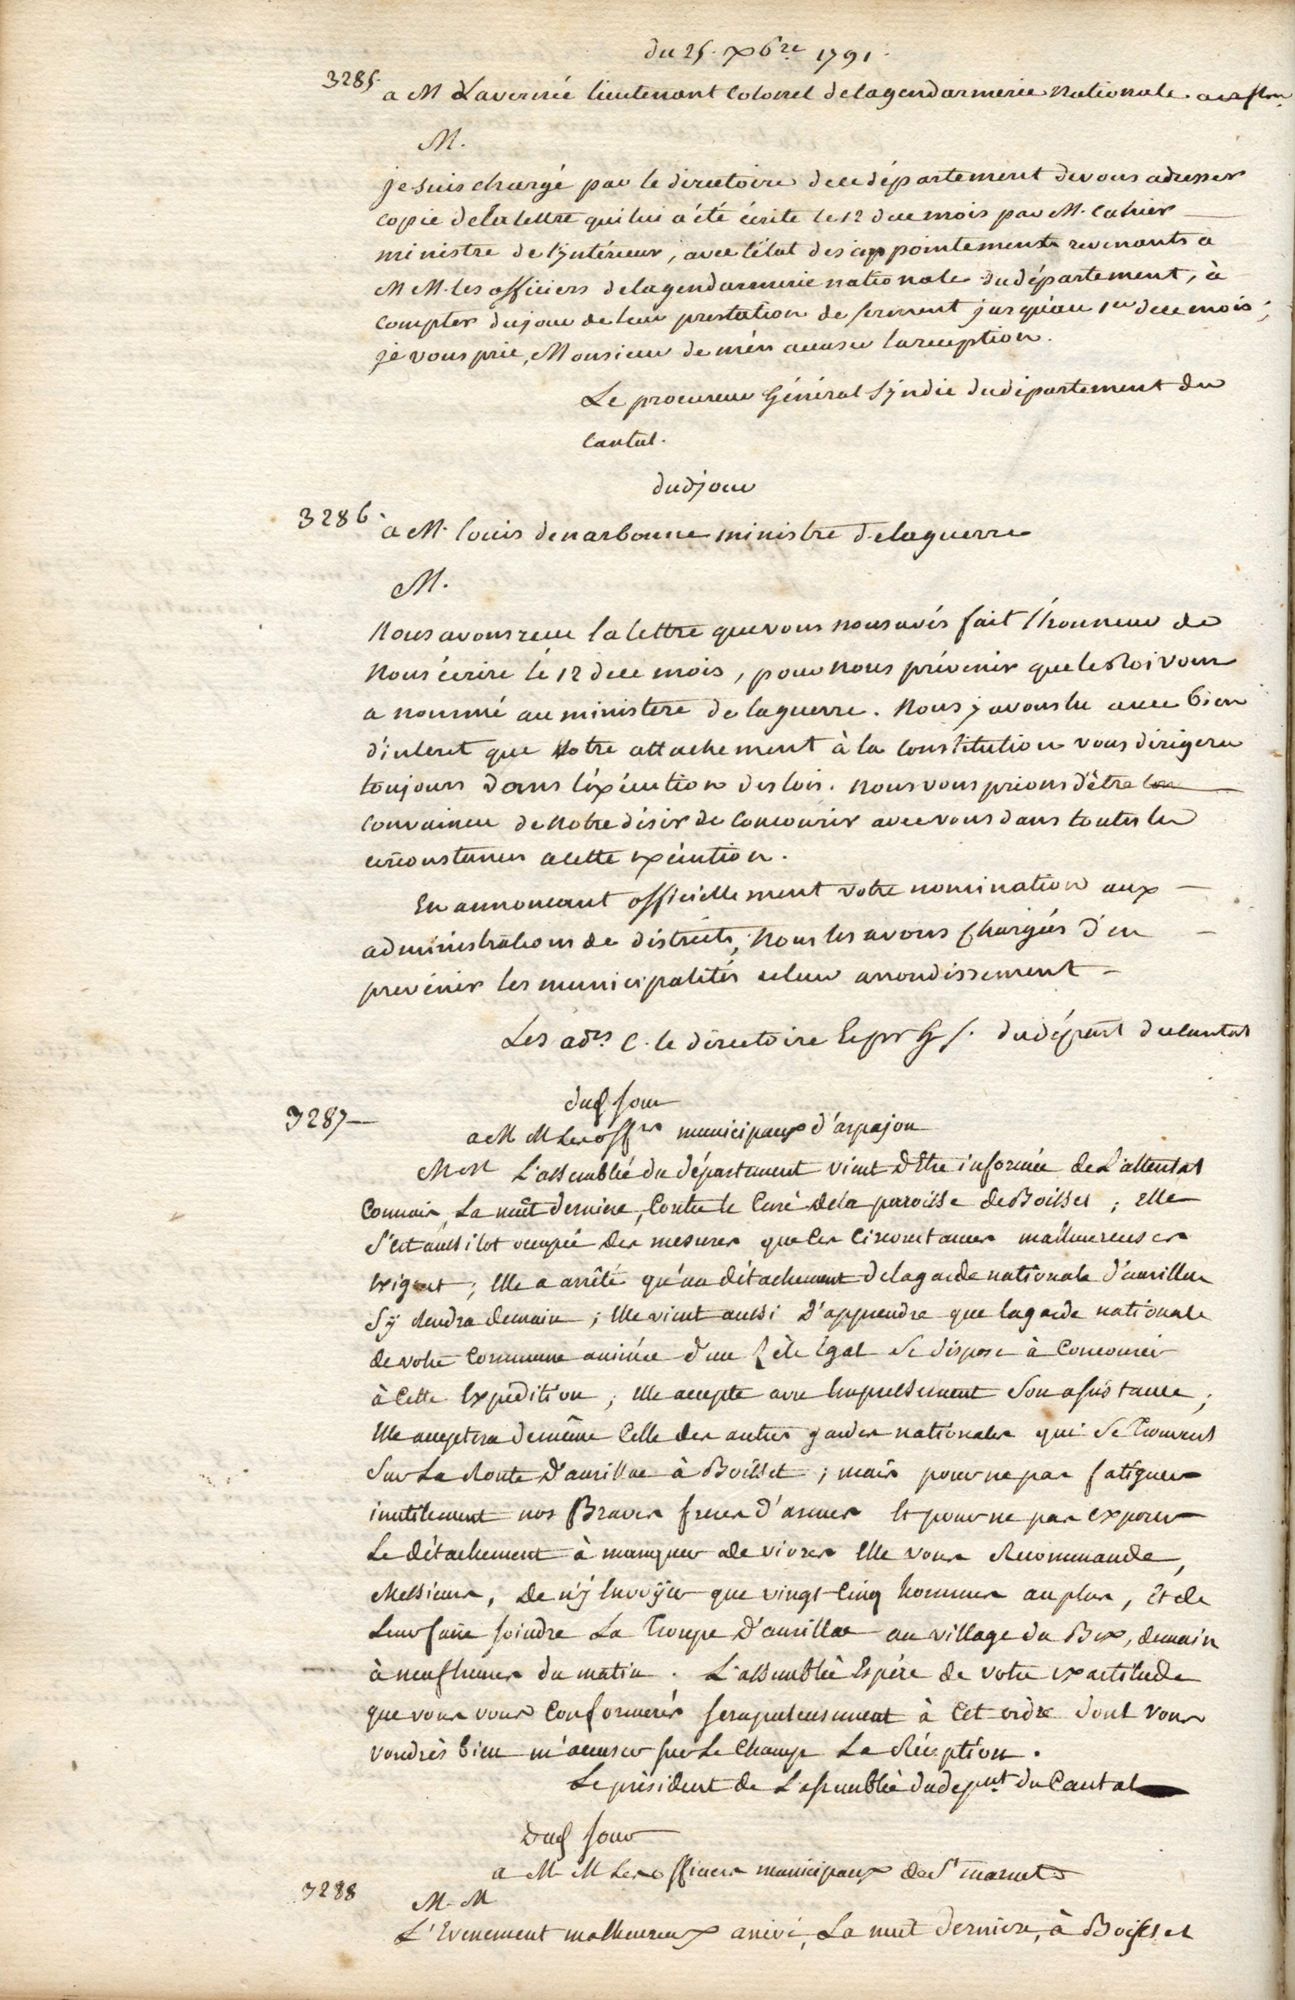 du 25. xbre 1791.
3285. a M Laverrié lieutenant Colonel de la gendarmerie Nationale
M.
je suis chargé par le directoire de ce département de vous adresser
copie de la lettre qui lui a été écrite le 12 de ce mois par M. Cahier
ministre de l'intérieur, avec l'état des appointements revenants a
MM. les officiers de la gendarmerie nationale du département, à
compter du jour de leur prestation de serment jusqu'au 1er de ce mois;
je vous prie, Monsieur de m'en accuser la reception.
Le procureur Général Syndic du département du
Cantal.
dud jour
3286. a M. louis de narbonne ministre de la guerre
M.
Nous avons recu la lettre que vous nous avés fait l'honneur de
Nous écrire le 12 de ce mois, pour Nous prévenir que le Roi vous
a nommé au ministere de la guerre. Nous y avons lu avec bien
d'interet que Notre attachement à la Constitution vous dirigera
toujours dans l'éxécution des lois. Nous vous prions d'être
convaincu de Notre désir de Concourir avec vous dans toutes les
circonstances a cette exécution.
En annoncant officiellement votre nomination aux
administrations de districts, Nous les avons chargés d'en
prevenir les municipalités de leur arrondissement
Les adrs C. le directoire le pr G S. du départ du Cantal
3287 dud Jour
a M M Les offrs municipaux d'arpajon
M M L'assemblée du département vient d'Etre informée de L'attentat
Commis, La nuit derniere, Contre le Curé de la paroisse de Boisset; Elle
S'est aussitot occupée des mesures que les Circonstances malheureuses
Exigent; Elle a arrêté qu'un détachement de la garde nationale d'aurillac
S'y Rendra demain; Elle vient aussi D'apprendre que la garde nationale
de votre Commune animée d'un Zèle Egal Se dispose à Concourir
à Cette Expédition; Elle accepte avec Empressement Son assistance;
Elle acceptera de même Celle des autres gardes nationales qui Se Trouvent
Sur La Route D'aurillac à Boisset; mais pour ne pas fatiguer
inutilement nos Braves freres d'armes Et pour ne pas exposer
Le détachement à manquer de vivres Elle vous Recommande,
Messieurs, De n'y Envoÿer que vingt Cinq hommes au plus, Et de
Leur faire Joindre La Troupe D'aurillac au village du Bex, demain
à neuf heures du matin. L'assemblée Espére de votre exactitude
que vous vous Conformerés scrupuleusement à Cet ordre dont vous
voudrés bien m'accuser sur Le Champ La Réception.
Le président de L'assemblée du depmt du Cantal
Dud Jour
a M M Les officiers municipaux de St mamet
3288 M. M
L'Evenement malheureux arrivé, La nuit derniere, à Boisset